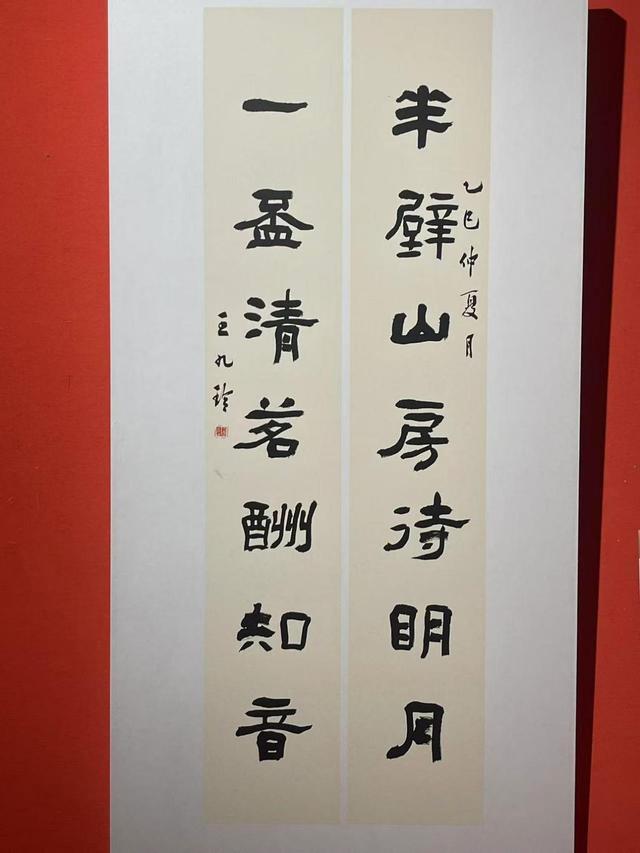 半壁山房待明月
乙巳仲夏月
一盃清茗酬知音
王九玲